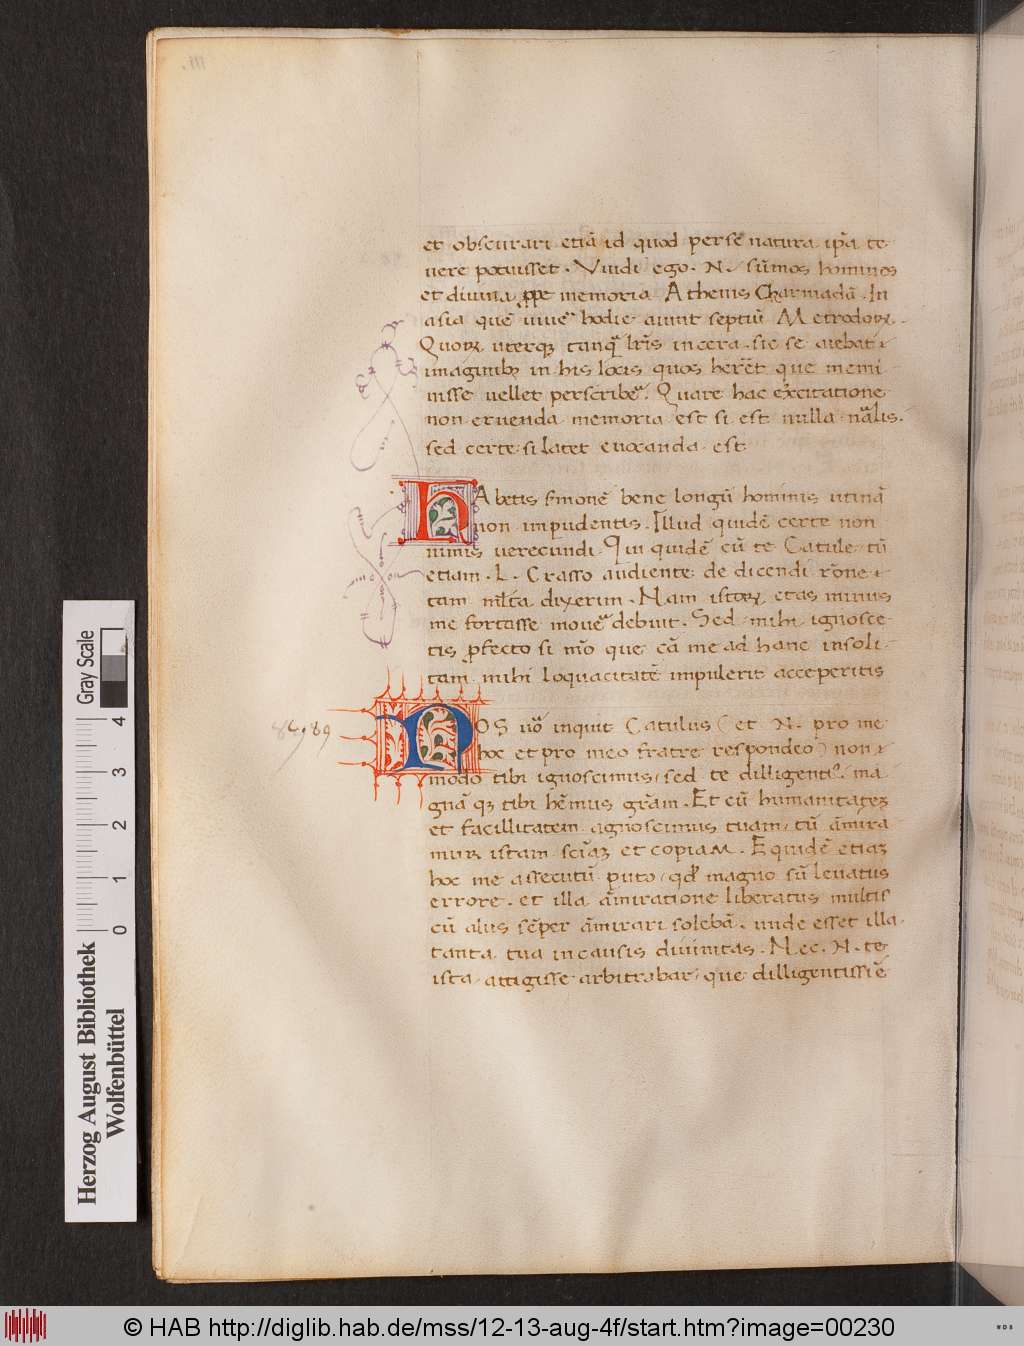 et obscurari etiā id quod per se natura ip̄a te
nere potuisset. Vuidi ego. N. sūmos homines
et diuina ꝓpe memoria Athenis Charmadā. In
asia quē uiueꝰ hodie aiunt septiū Metrodoꝝ.
Quoꝝ uterqꝫ tanqꝫ lr̄is in cera. sic se aiebat
imaginibꝫ in his locis quos herēt que memi
nisse uellet perscribeꝰ. Quare hac excitatione
non eruenda memoria est si est nulla nālis.
sed certe si latet euocanda est
HAbetis sˀmonē bene longū hominis utinā
non impudentis. Illud quidē certe non
nimis uerecundi. Qui quidē cū te Catule tū
etiam. L. Crasso audiente de dicendi rōne
tam ml̄ta dixerim. Nam istoꝝ etas minus
me fortasse moueꝰ debuit. Sed mihi ignosce
tis ꝓfecto si mō que cā me ad hanc insoli
tam mihi loquacitatē impulerit acceperitis
84, 89
NOS uō inquit Catulus (et N. pro me
hoc et pro meo fratre respondeo) non
modo tibi ignoscimus, sed te dilligimꝰ. ma
gnā qꝫ tibi hēmus grām. Et cū humanitateꝫ
et facillitatem agnoscimus tuam, tū āmira
mur istam sciāꝫ et copiam. Equidē etiaꝫ
hoc me assecutū puto, qd̄ magno sū leuatus
errore. et illa āmiratione liberatus multis
cū aliis sēper āmirari solebā. unde esset illa
tanta tua in causis diuinitas. Nec. N. te
ista attigisse arbitrabar, que dilligentissiē
Herzog August Bibliothek
Wolfenbüttel
Gray Scale
0 1 2 3 4
© HAB http://diglib.hab.de/mss/12-13-aug-4f/start.htm?image=00230